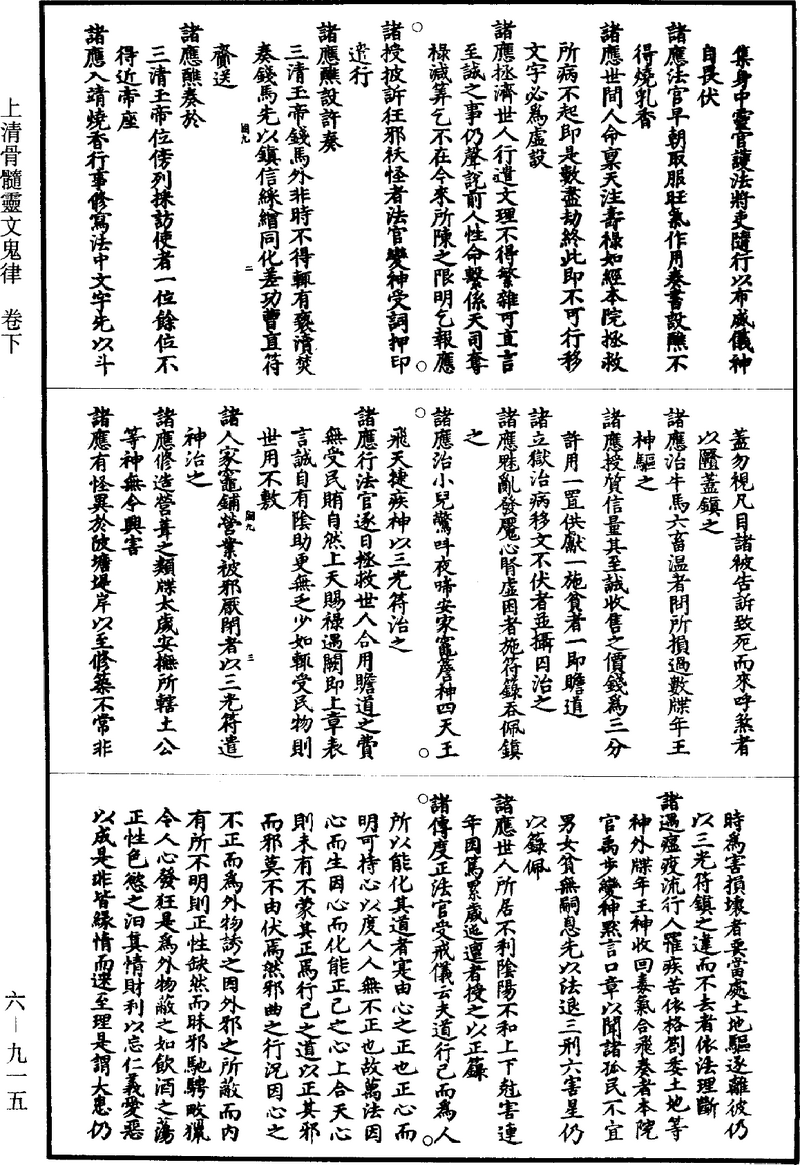 上清骨髓靈文鬼律　卷下
六—九一五
集身中靈官護法將吏隨行以布威儀神
自畏伏
諸應法官早朝取服旺氣作用奏書設醮不
得燒乳香
諸應世間人命稟天注壽祿如經本院拯救
所病不起即是數盡劫終此即不可行移
文字必為虛設
諸應拯濟世人行遣文理不得繁雜可直言
至誠之事仍聲說前人性命繫係天司奪
祿減算乞不在今來所陳之限明乞報應
諸授披訴狂邪祆怪者法官變神受詞押印
遣行
諸應醮設許奏
三清玉帝錢馬外非時不得輒有褻瀆焚
奏錢馬先以鎮信綵繒同化差功曹直符
齎送
諸應醮奏於
三清玉帝位傍列採訪使者一位餘位不
得近帝座
諸應入靖燒香行事修寫法中文字先以斗
蓋勿視凡目諸被告訴致死而來呼煞者
以鬮蓋鎮之
諸應治牛馬六畜温者問所損過數牒年王
神驅之
諸應授質信量其至誠收售之價錢為三分
許用一置供獻一施貧者一即贍道
諸立獄治病移文不伏者並攝囚治之
諸應魅亂發魘心腎虛困者施符籙吞佩鎮
之
諸應治小兒驚呌夜啼安家竈蒼神四天王
飛天捷疾神以三光符治之
諸應行法官逐日拯救世人合用贍道之費
無受民賄自然上天賜祿遇闕即上章表
言誠自有陰助更無乏少如輒受民物則
世用不敷
諸人家竈鋪營業被邪厭閉者以三光符遣
神治之
諸應修造營葺之類牒太歲安撫所轄土公
等神無令興害
諸應有怪異於陂塘堤岸以至修築不常非
時為害損壞者要當處土地驅逐離彼仍
以三光符鎮之違而不去者依法理斷
諸遇瘟疫流行人罹疾苦依格劄委土地等
神外牒年王神收回毒氣合飛奏者本院
官禹步變神黙言口章以聞諸孤民不宜
男女貧無嗣息先以法退三刑六害星仍
以籙佩
諸應世人所居不利陰陽不和上下尅害連
年因篤累歲迍邅者授之以正籙
諸傳度正法官受戒儀云夫道行己而為人
所以能化其道者寔由心之正也正心而
明可持心以度人人無不正也故萬法因
心而生因心而化能正己之心上合天心
則未有不蒙其正焉行己之道以正其邪
而邪莫不由伏焉然邪曲之行況因心之
不正而為外物誘之因外邪之所蔽而內
有所不明則正性缺然而昧邪馳騁畋獵
令人心發狂是為外物蔽之如飲酒之蕩
正性色慾之汩真情財利以忘仁義愛惡
以成是非皆緣情而遷至理是謂大患仍